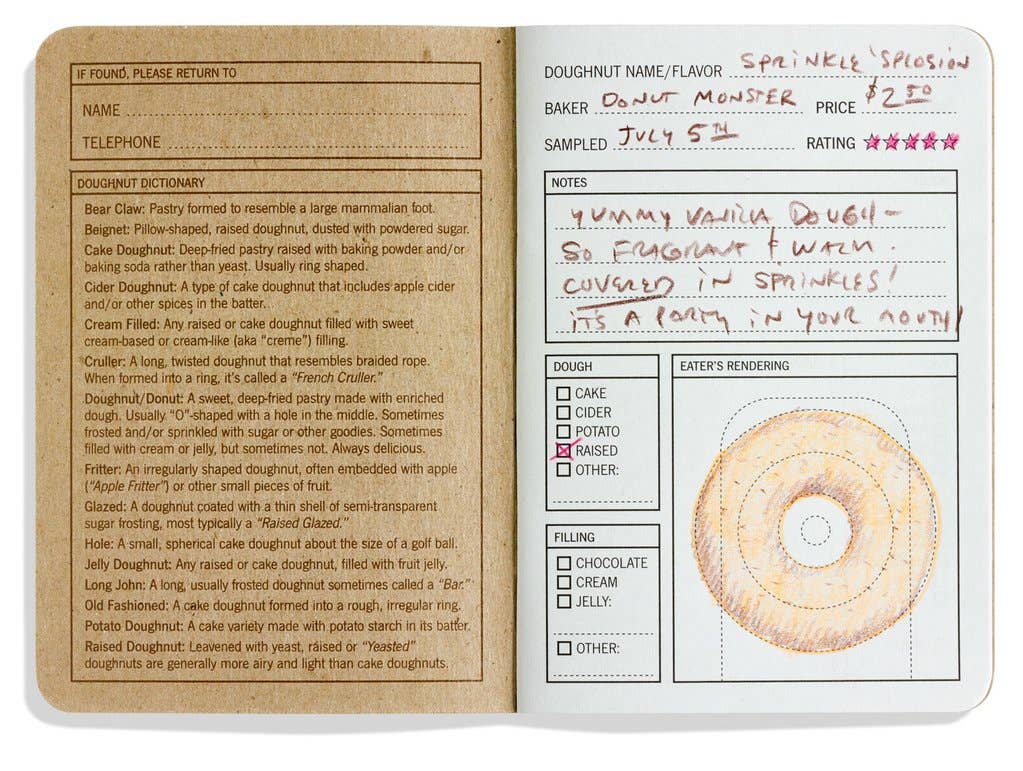 IF FOUND, PLEASE RETURN TO
NAME
TELEPHONE
DOUGHNUT DICTIONARY
Bear Claw: Pastry formed to resemble a large mammalian foot.
Beignet: Pillow-shaped, raised doughnut, dusted with powdered sugar.
Cake Doughnut: Deep-fried pastry raised with baking powder and/or
baking soda rather than yeast. Usually ring shaped.
Cider Doughnut: A type of cake doughnut that includes apple cider
and/or other spices in the batter.
Cream Filled: Any raised or cake doughnut filled with sweet
cream-based or cream-like (aka “creme”) filling.
Cruller: A long, twisted doughnut that resembles braided rope.
When formed into a ring, it’s called a “French Cruller.”
Doughnut/Donut: A sweet, deep-fried pastry made with enriched
dough. Usually “O”-shaped with a hole in the middle. Sometimes
frosted and/or sprinkled with sugar or other goodies. Sometimes
filled with cream or jelly, but sometimes not. Always delicious.
Fritter: An irregularly shaped doughnut, often embedded with apple
(“Apple Fritter”) or other small pieces of fruit.
Glazed: A doughnut coated with a thin shell of semi-transparent
sugar frosting, most typically a “Raised Glazed.”
Hole: A small, spherical cake doughnut about the size of a golf ball.
Jelly Doughnut: Any raised or cake doughnut, filled with fruit jelly.
Long John: A long, usually frosted doughnut sometimes called a “Bar.”
Old Fashioned: A cake doughnut formed into a rough, irregular ring.
Potato Doughnut: A cake variety made with potato starch in its batter.
Raised Doughnut: Leavened with yeast, raised or “Yeasted”
doughnuts are generally more airy and light than cake doughnuts.
DOUGHNUT NAME/FLAVOR SPRINKLE 'SPLOSION
BAKER DONUT MONSTER PRICE $2 50
SAMPLED JULY 5TH RATING
NOTES
YUMMY VANILLA DOUGH –
SO FRAGRANT & WARM.
COVERED IN SPRINKLES!
IT'S A PARTY IN YOUR MOUTH!
DOUGH
CAKE
CIDER
POTATO
RAISED
OTHER:
FILLING
CHOCOLATE
CREAM
JELLY:
OTHER:
EATER’S RENDERING